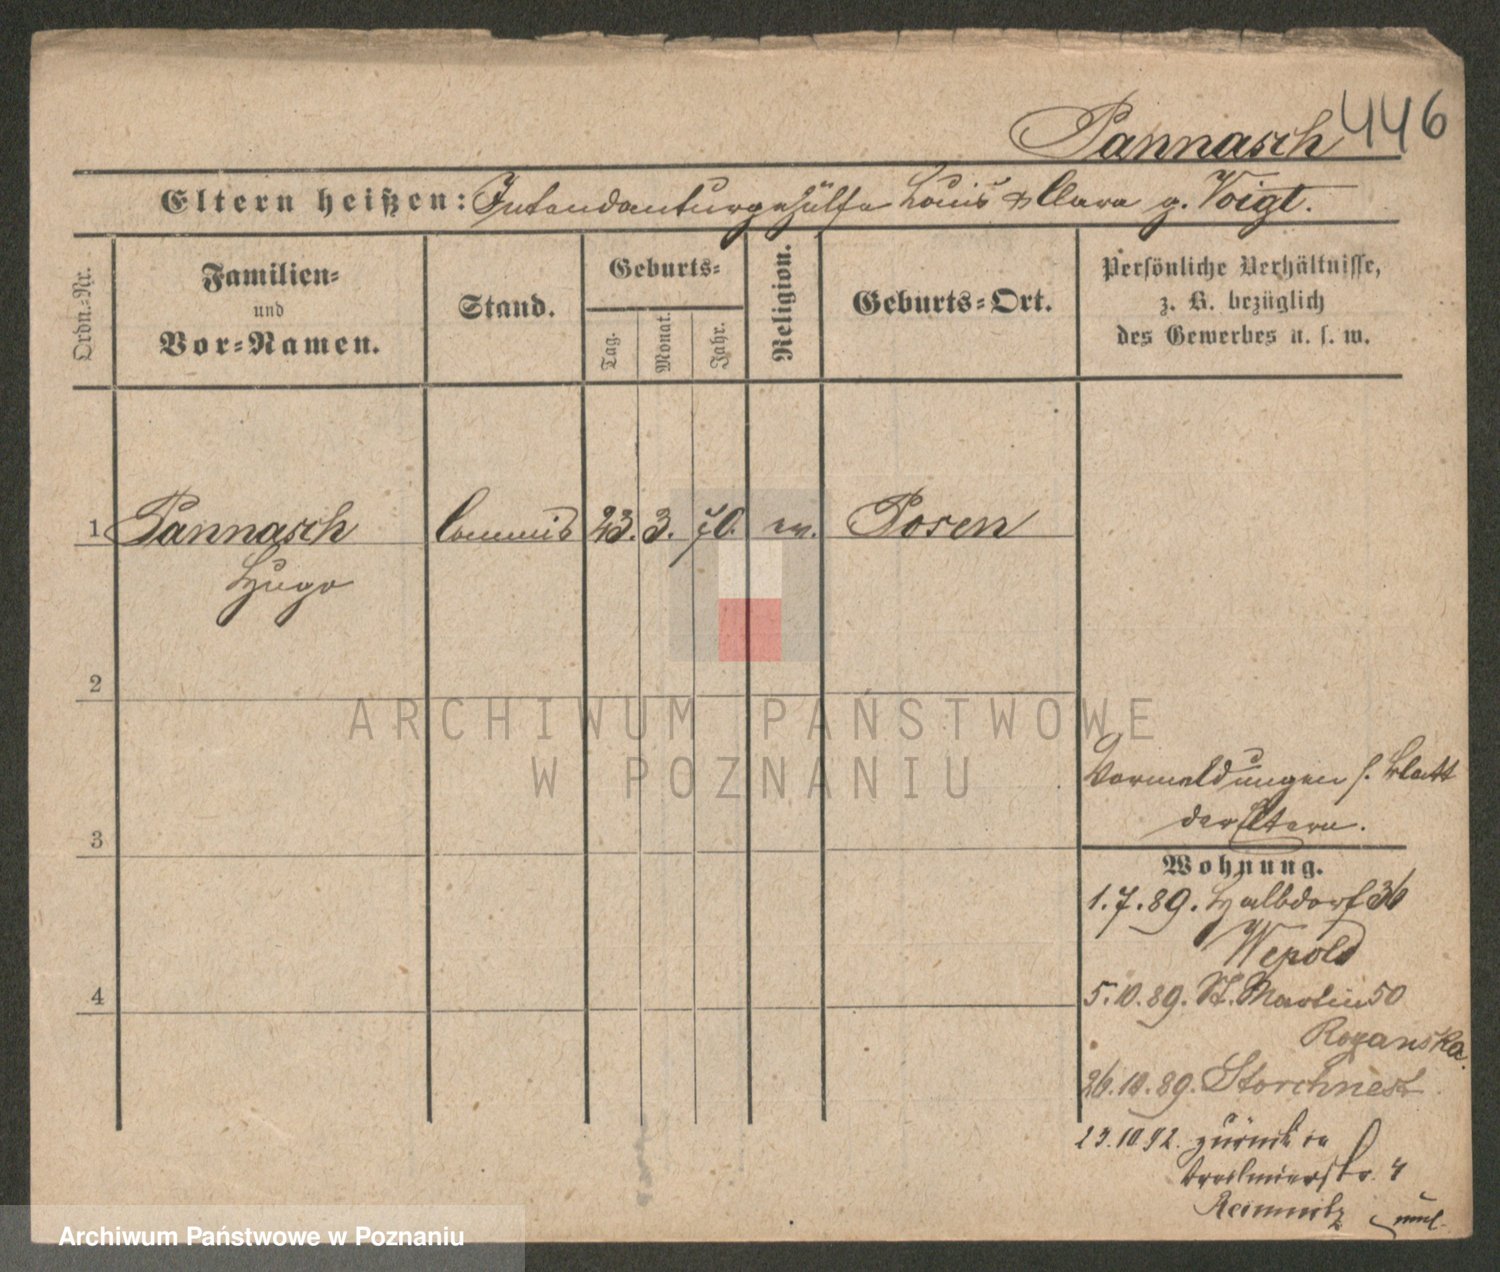 Pannasch 446
Eltern heißen: Intendanturgehülfe Louis & Clara g. Voigt.
Ordn.-Nr.
Familien-
und
Vor-Namen.
Stand.
Geburts-
Tag.
Monat.
Jahr.
Religion.
Geburts-Ort.
Persönliche Verhältnisse,
z. B. bezüglich
des Gewerbes u. s. w.
1 Pannasch Commis 23. 3. 70. ev. Posen
Hugo
2
ARCHIWUM PAŃSTWOWE
W POZNANIU
Vormeldungen s. Blatt
der Eltern.
3
Wohnung.
1.7.89. Halbdorf 36
Wepold
4
5.10.89. St. Martin 50
Roganska
26.10.89. Storchnest
23.10.92. zurück in
4
Archiwum Państwowe w Poznaniu